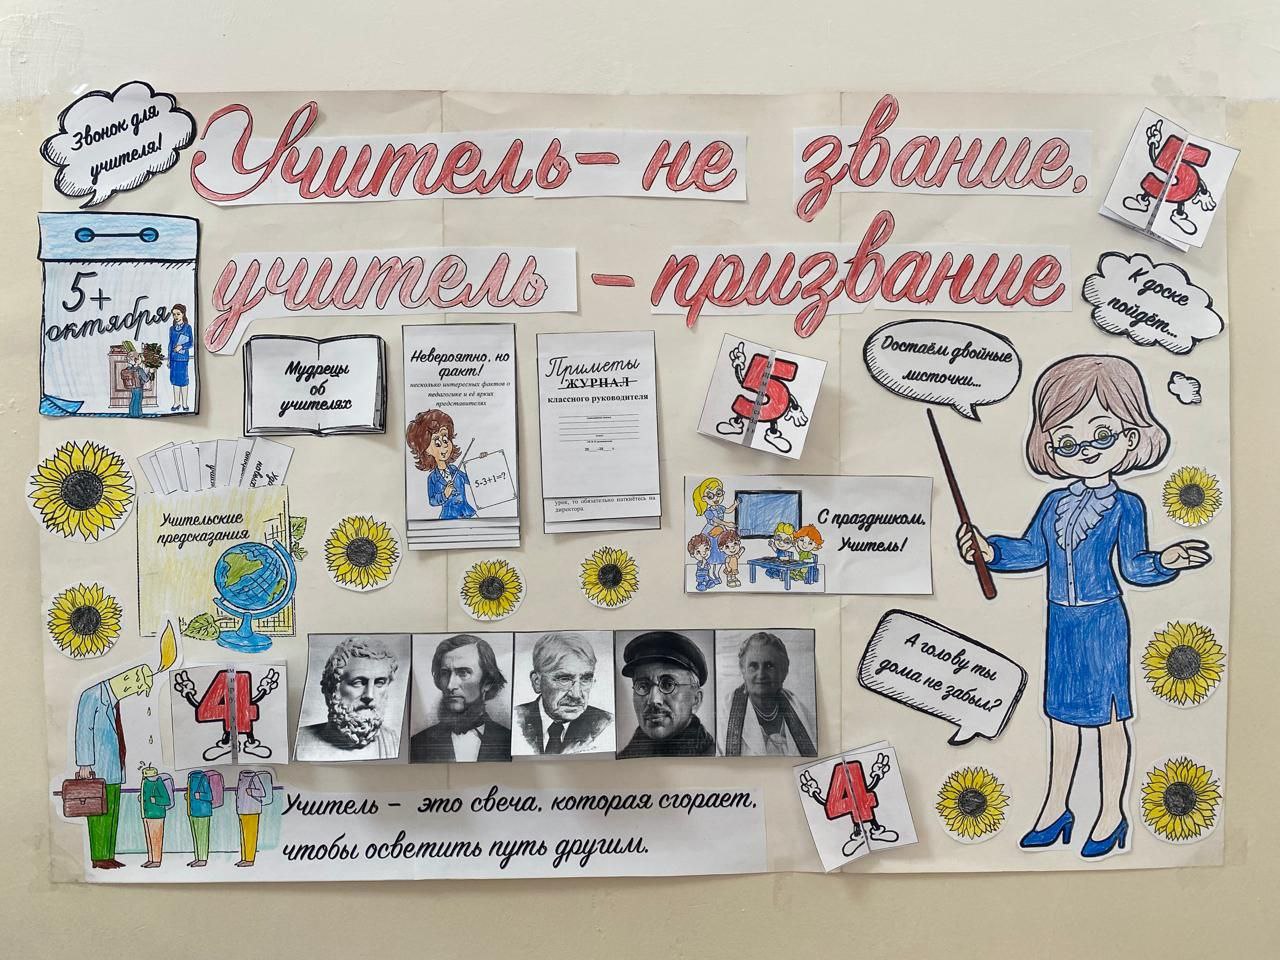 Звонок для
учителя!
Учитель- не звание,
учитель - призвание
5
5+
октября
Мудрецы
об
учителях
Невероятно, но
факт!
несколько интересных фактов о
педагогике и её ярких
представителях
5-3+1=?
Приметы
ЖУРНАЛ
классного руководителя
урок, то обязательно наткнётесь на
директора.
5
Достаём двойные
листочки...
К доске
пойдёт...
Учительские
предсказания
С праздником,
Учитель!
А голову ты
дома не забыл?
4
4
Учитель - это свеча, которая сгорает,
чтобы осветить путь другим.